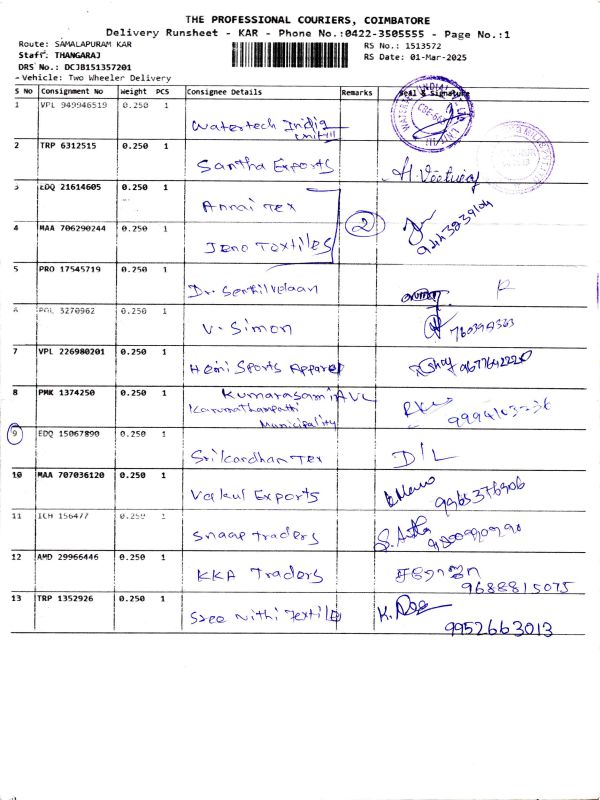 THE PROFESSIONAL COURIERS, COIMBATORE
Delivery Runsheet - KAR - Phone No.:0422-3505555 - Page No.:1
Route: SAMALAPURAM KAR RS No.: 1513572
Staff: THANGARAJ RS Date: 01-Mar-2025
DRS No.: DCJB151357201
Vehicle: Two Wheeler Delivery
S No Consignment No Weight PCS Consignee Details Remarks Seal & Signature
1 VPL 949946519 0.250 1 Watertech India
Unit III
2 TRP 6312515 0.250 1 Santha Exports
3 EDQ 21614605 0.250 1 Annai Tex
2
4 MAA 706290244 0.250 1 Jeno Textiles
5 PRO 17545719 0.250 1 Dr. Senthilvelaan
6 POL 3270962 0.250 1 V. Simon
7 VPL 226980201 0.250 1 Hemi Sports Apparel
8 PMK 1374250 0.250 1 Kumarasami AVL
Karumathampatti
Municipality
9 EDQ 15067890 0.250 1 Srikardhan Tex D/L
10 MAA 707036120 0.250 1 Vakul Exports 9965376906
11 ICH 156477 0.250 1 Snaap traders
12 AMD 29966446 0.250 1 KKA Traders 9688815075
13 TRP 1352926 0.250 1 Sree Nithi Textile 9952663013